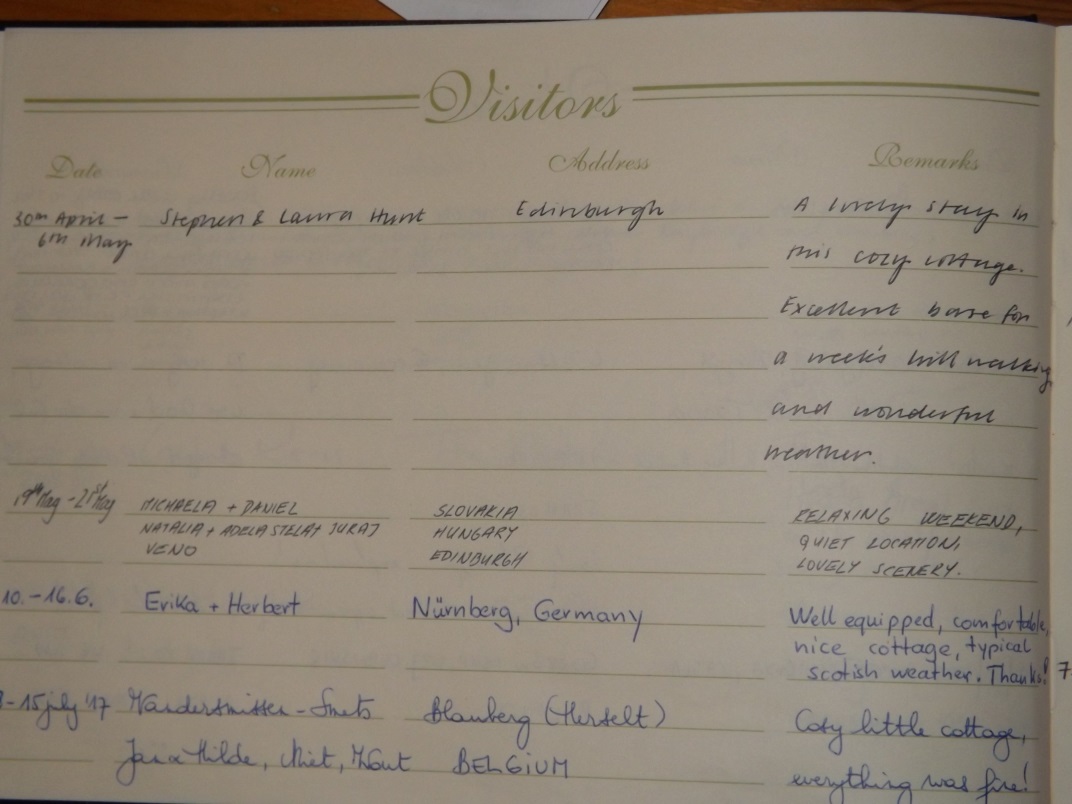 Visitors
Date Name Address Remarks
30th April - Stephen & Laura Hunt Edinburgh A lovely stay in
6th May
this cozy cottage.
Excellent base for
a week's hill walking
and wonderful
weather.
19th May - 21st May MICHAELA + DANIEL SLOVAKIA RELAXING WEEKEND,
NATALIA + ADELA STELA + JURAJ HUNGARY QUIET LOCATION,
VENO EDINBURGH LOVELY SCENERY.
10. - 16.6. Erika + Herbert Nürnberg, Germany Well equipped, comfortable,
nice cottage, typical
scotish weather. Thanks!
- 15 july '17 Vandersmissen - Smets Blauberg (Herselt) Cosy little cottage,
Jan & Hilde, Miet, Wout BELGIUM
everything was fine!